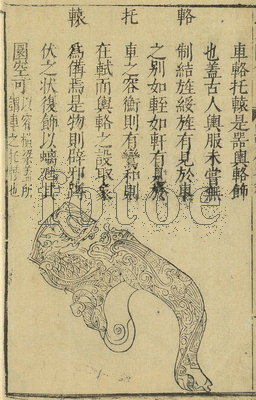 輅托轅
車輅托轅是器輿輅飾
也蓋古人輿服未嘗無
制結旌綏旌有見於車
之別如輊如軒有見於
車之容衡則有鸞和則
在軾而輿輅之設取象
為備焉是物則辟邪蹲
伏之狀復飾以蟠螭其
圓空可以容橫梁蓋所
謂之托轅也